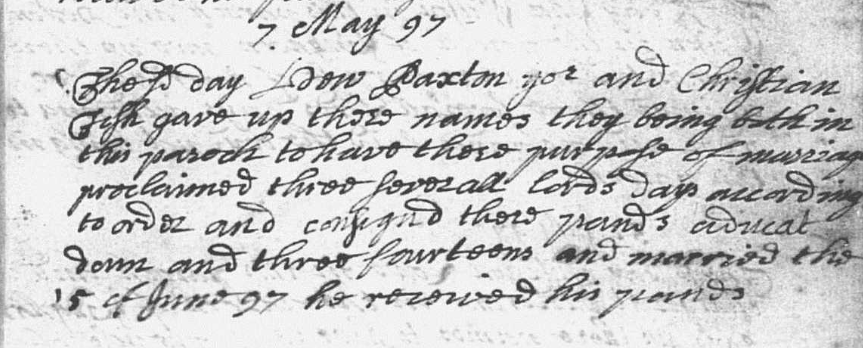 7 May 97
The sd day Edew Paxton yor and Christian
Fish gave up there names they being both in
this paroch to have there purpose of marriag
proclaimed three severall lords days according
to order and consignd there pands a ducat
doun and three fourteens and married the
15 of June 97 he received his pands